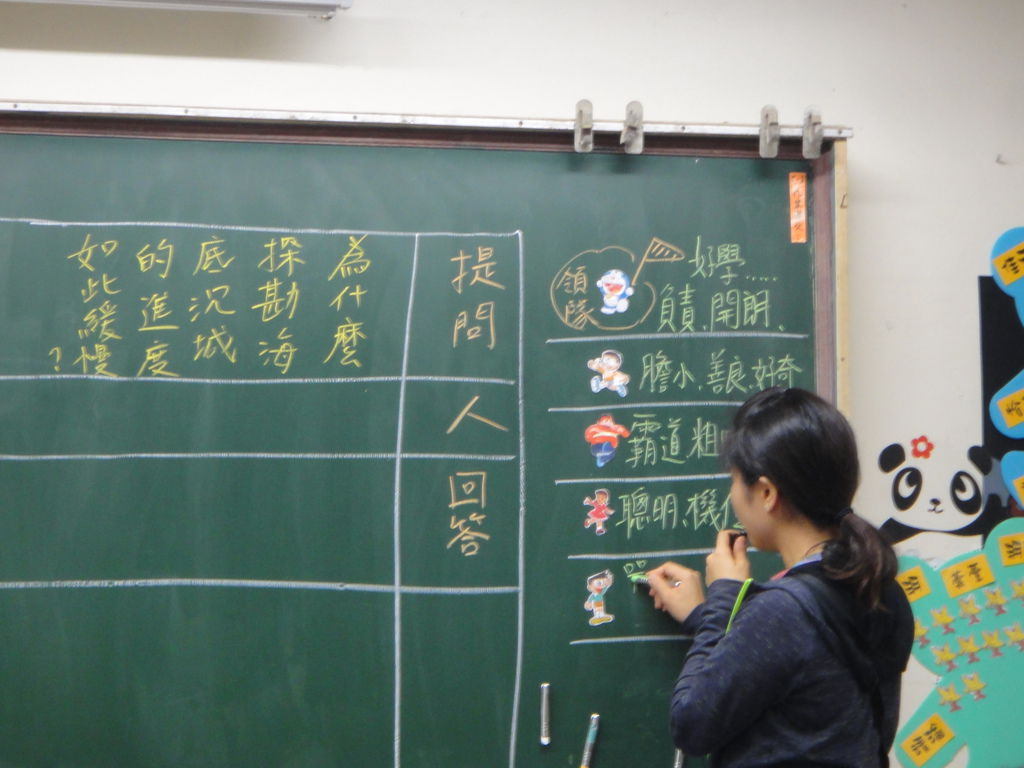 為什麼
探勘海
底沉城
的進度
如此緩慢
?
提問
人
回答
領隊
好學.....
負責、開明、
膽小、善良、好奇
霸道、粗
聰明、機